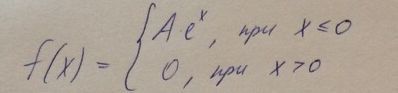 f(x) = { A·eˣ, при x ≤ 0
0, при x > 0